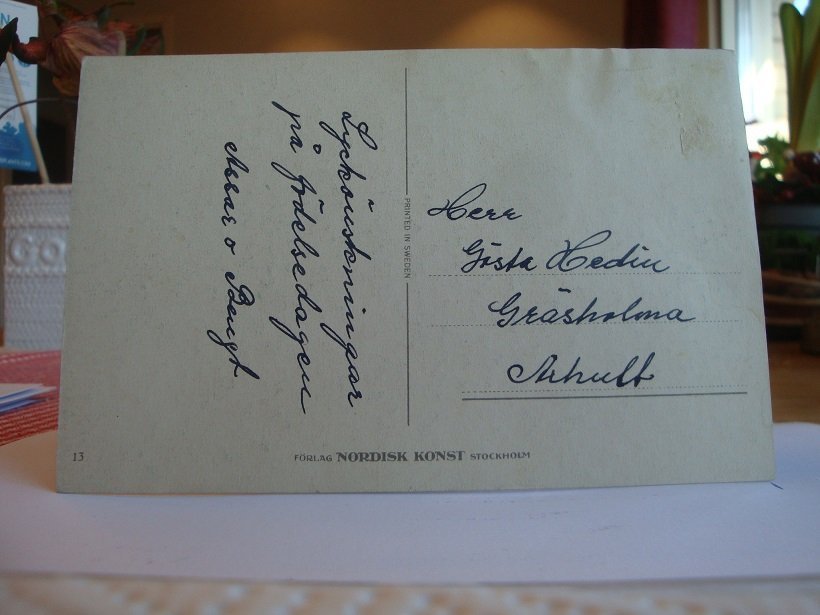 Lyckönskningar
på födelsedagen
Assar o Bengt
PRINTED IN SWEDEN
Herr
Gösta Hedin
Gräsholma
Arhult
13
FÖRLAG NORDISK KONST STOCKHOLM
GO